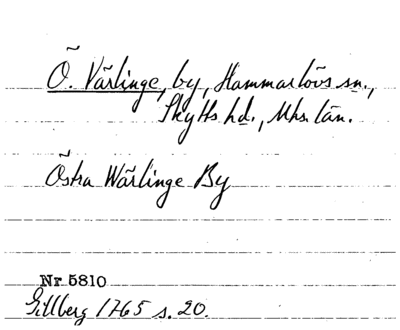 Ö. Värlinge, by, Hammarlövs sn.,
Skytts hd., Mhs. län.
Östra Wärlinge By
Nr 5810
Gillberg 1765 s. 20.